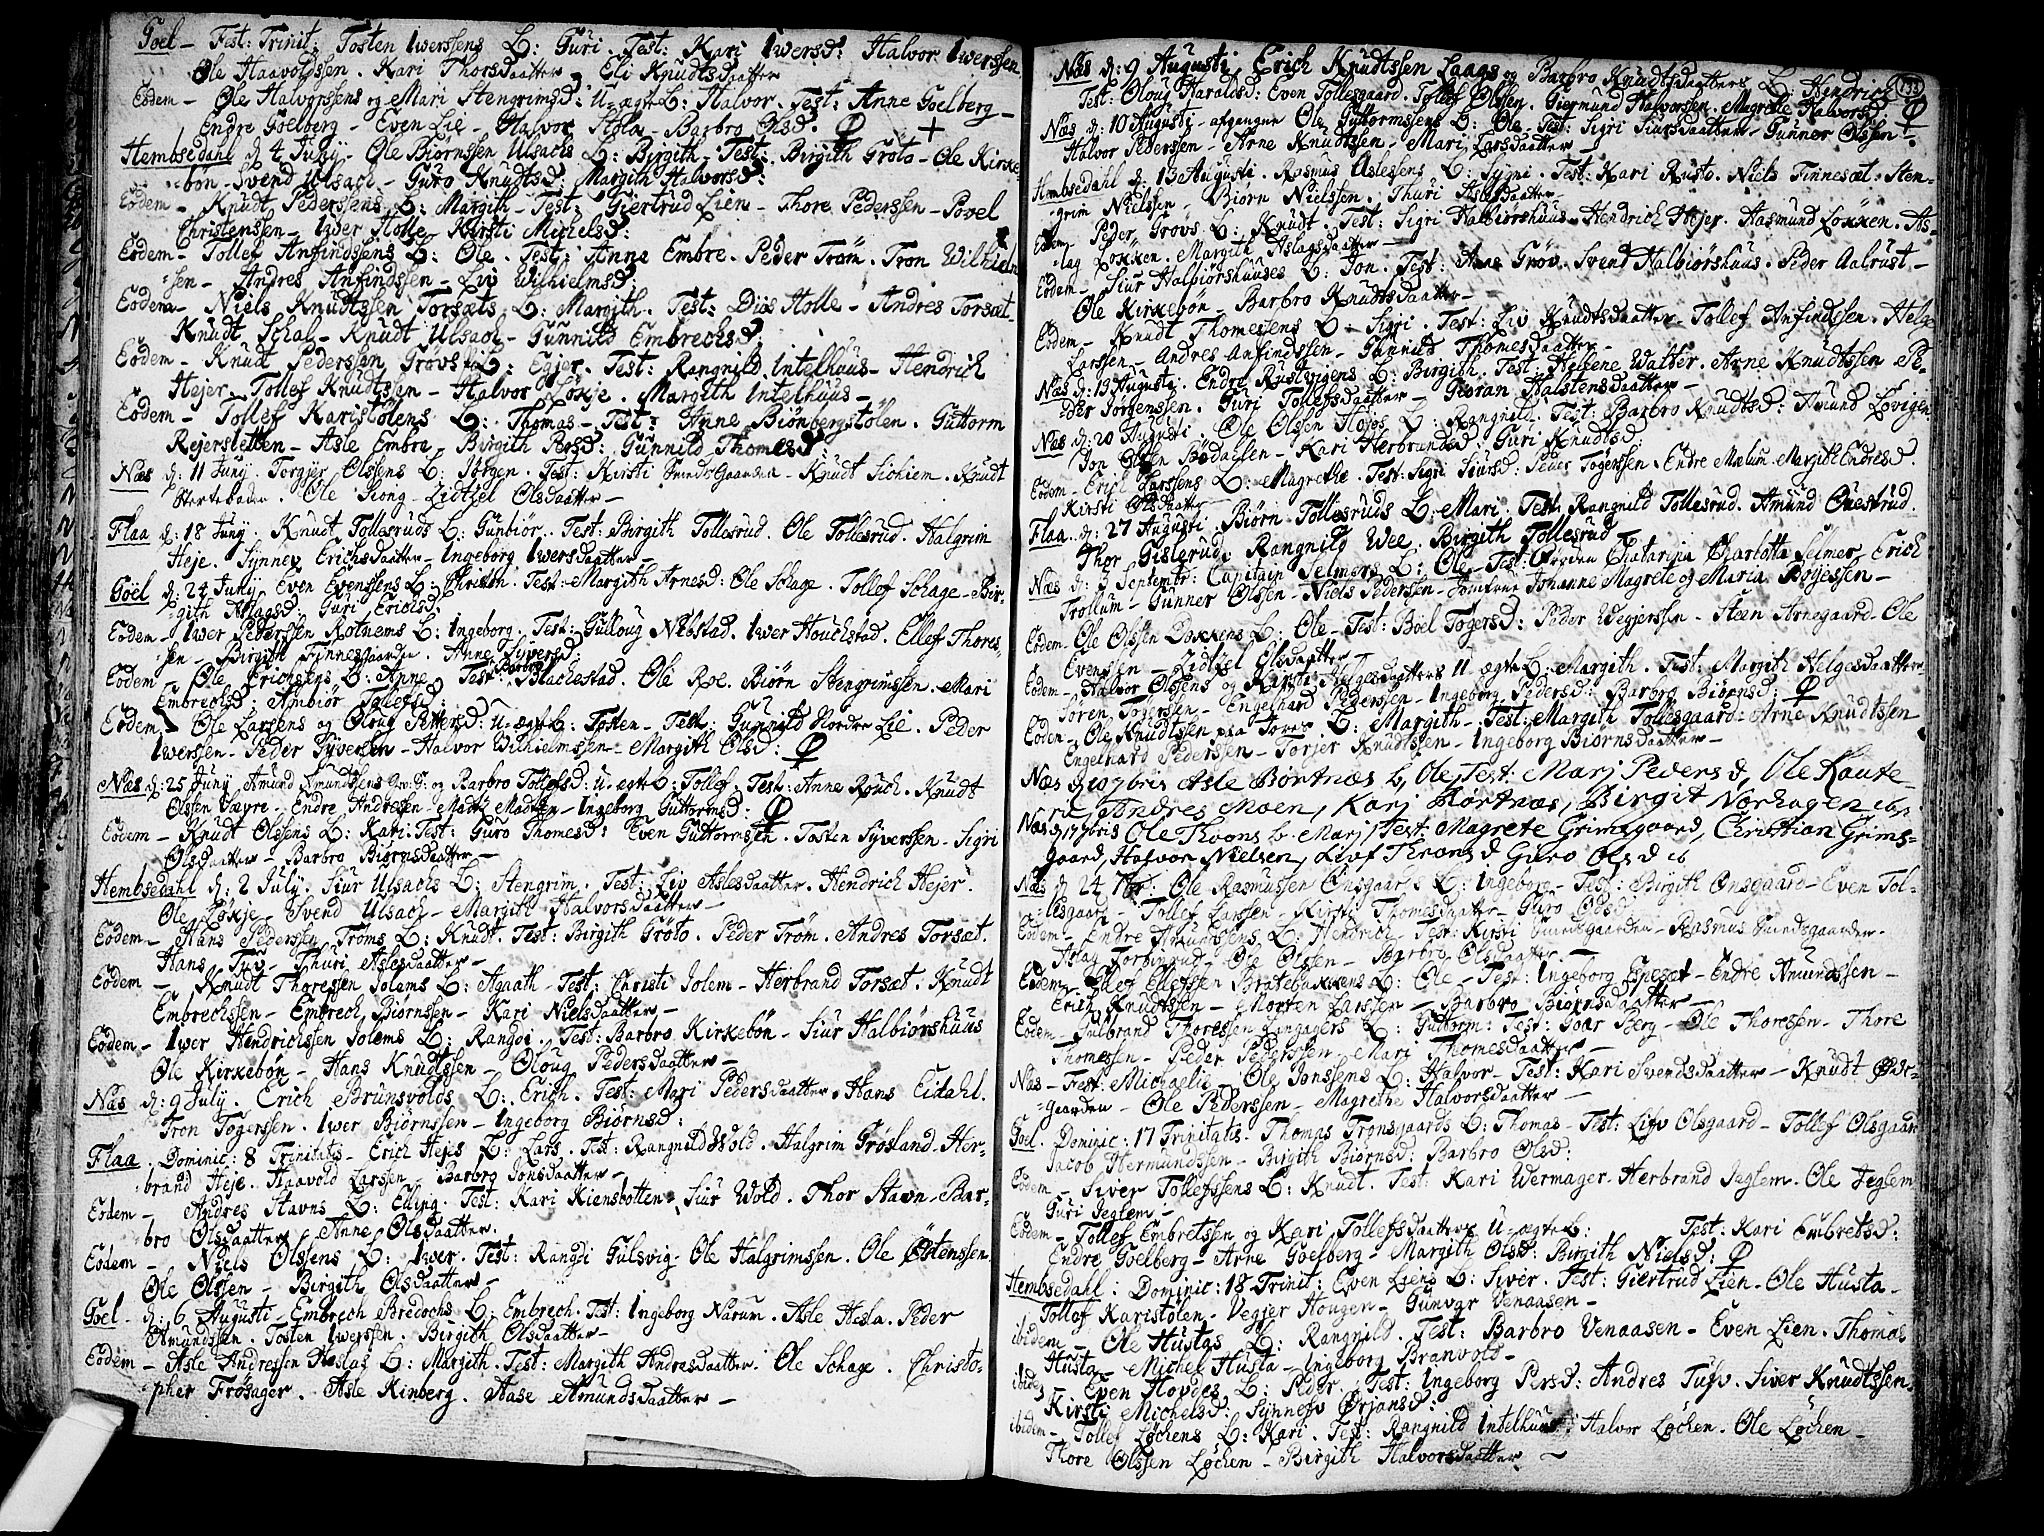 Goel – Fest: Trinit: Tosten Iwerssens L: Guri. Test: Kari Iwersd: Halvor Iwerssen
Ole Haavoldssen. Kari Thorsdaatter. Eli Knudtsdaatter
Eodem – Ole Halvorssens og Mari Stengrimsd: U-ægte L: Halvor. Test: Anne Goelberg –
Endre Goelberg – Even Lie – Halvor Stola – Barbro Olsd.
Hembsedahl d: 4 Juny – Ole Biørnssen Ulsachs L: Birgith – Test: Birgith Grøto – Ole Kirke-
bøn – Svend Ulsach – Guro Knudtsd: Margith Halvorsd:
Eodem – Knudt Pederssens L: Margith – Test: Giertrud Lien – Thore Pederssen – Povel
Christenssen – Iver Holle – Kirsti Michelsd:
Eodem – Tollef Anfindssens L: Ole. Test: Anne Embre. Peder Trøm. Tron Wilhielm
sen – Andres Anfindssen – Liv Wilhielmsd:
Eodem – Niels Knudtssen Torsæts L: Margith. Test: Diis Holle – Andres Torsæt –
Knudt Schal – Knudt Ulsach – Gunnild Embrechsd:
Eodem – Knudt Pederssen Grøvs L: Egjer. Test: Rangnild Intelhuus – Hendrich
Hejer – Tollef Knudtssen – Halvor Løkje. Margith Intelhuus –
Eodem – Tollef Karistølens L: Thomas – Test: Anne Biønbergstølen. Guttorm
Rejersletten – Asle Embre – Birgith Persd: Gunnild Thomesd:
Næs d: 11 Juny. Torgjer Olssens L: Jørgen. Test: Kirsti Smeds Gaarden – Knudt Sichiem. Knudt
Ole Siong – Zidtzel Olsdaatter –
Flaa d: 18 Juny. Knudt Tollesruds L: Gunbiør. Test: Birgith Tollesrud. Ole Tollesrud. Halgrim
Heje. Synnev Erichsdaatter – Ingeborg Iwersdaatter –
Goel d: 24 Juny Even Evenssens L: Christen. Test: Margith Arnesd: Ole Schage. Tollef Schage – Bir-
gith Aslagsd: Guri Erichsd:
Eodem – Iwer Pederssen Rotnems L: Ingeborg. Test: Gulloug Nibstad. Iwer Houchstad. Ellef Thores
sen – Birgith Finnesgaarden. Anne Syversd:
Eodem – Ole Erichsens L: Anne – Test: Barbro Blachestad. Ole Roe. Biørn Stengrimssen. Mari
Embrechsd: Ambiør Tollefsd:
Eodem – Ole Larsens og Oloug Pettersd: U-ægte L: Tosten – Test: Gunnild Nordre Lie. Peder
Iwerssen – Peder Syverssen – Halvor Wilhielmssen – Margith Olsd:
Næs d: 25 Juny Amund Amundsens og Barbro Tollefsd: U-ægte L: Tollef. Test: Anne Rouch. Knudt
Olsen Sævre – Endre Andressen – Mads Madsen – Ingeborg Guttormsd:
Eodem – Knudt Olssens L: Kari. Test: Guro Thomesd: Even Guttormssen. Tosten Syverssen – Sigri
Olsdaatter – Barbro Biørnsdaatter –
Hembsedahl d: 2 July. Siur Ulsachs L: Stengrim. Test: Liv Aslesdaatter. Hendrich Hejer.
Ole Løkje – Svend Ulsach – Margith Halvorsdaatter –
Eodem – Hans Pederssen Trøms L: Knudt. Test: Birgith Grøto. Peder Trøm. Andres Torsæt.
Hans Tuv – Thuri Aslesdaatter –
Eodem – Knudt Thoressen Jolems L: Agaath – Test: Christi Jolem – Herbrand Torsæt. Knudt
Embrechssen – Embrech Biørnssen – Kari Nielsdaatter –
Eodem – Iwer Hendrichssen Jolems L: Rangdi. Test: Barbro Kirkebøn – Siur Halbiørshuus
Ole Kirkebøn – Hans Knudtssen – Oloug Pedersdaatter –
Næs d: 9 July. Erich Brunsvolds L: Erich. Test: Mari Pedersdaatter. Hans Eidahl.
Tron Togerssen. Iwer Biørnssen – Ingeborg Biørnsd:
Flaa. Dominic: 8 Trinitatis – Erich Hejes L: Lars. Test: Rangnild Wold. Halgrim Trøsland – Her-
brand Heje. Haavold Larssen – Barbro Jonsdaatter –
Eodem – Andres Stavns L: Eding. Test: Kari Kiensbotten. Siur Wold. Thor Stavn – Bar-
bro Olsdaatter – Anne Olsdaatter.
Eodem – Niels Olssens L: Iwer. Test: Rangdi Gulsvig – Ole Halgrimssen. Ole Østenssen.
Ole Olssen – Birgith Olsdaatter –
Goel. d: 6 Augusti – Embrech Bredochs L: Embrech. Test: Ingeborg Narum. Asle Hesla. Peder
Amundssen. Tosten Iwerssen. Birgith Olsdaatter –
Eodem – Asle Andressen Heslas L: Margith. Test: Margith Andresdaatter. Ole Schage. Christo-
pher Frøsager. Asle Kinberg. Aase Amundsdaatter –
Næs d: 9 Augusti. Erich Knudtssen Laags og Barbro Knudtsdaatters L: Hendrich
Test: Oloug Haraldsd: Even Tollesgaard. Tollef Olssen. Giermund Halvorssen. Magrethe Halvorsd:
Næs d: 10 Augusti – afgangne Ole Guttormssens L: Ole. Test: Sigri Siursdaatter – Gunner Olssen
Halvor Pederssen – Arne Knudtssen – Mari Larsdaatter –
Hembsedahl d: 13 Augusti. Rasmus Aslessens L: Sygni. Test: Kari Rusto. Niels Finneset. Sten-
grim Nielssen – Biørn Nielssen. Thuri Aslesdaatter –
Eodem – Peder Grøvs L: Knudt. Test: Sigri Halbiørshuus – Hendrich Hejer. Aasmund Løkken. As-
lag Løkken. Margith Aslagsdaatter –
Eodem – Siur Halbiørshuuses L: Jon. Test: Anne Grøv. Svend Halbiørshuus. Peder Aalrust –
Ole Kirkebøn – Barbro Knudtsdaatter –
Eodem – Knudt Thomessens L: Sigri. Test: Liv Knudtsdaatter – Tollef Anfindssen. Helge
Larssen – Andres Anfindssen – Gunnild Thomesdaatter –
Næs d: 19 Augusti. Endre Rustvigens L: Birgith. Test: Hellene Walter. Arne Knudtssen Pe-
der Jørgenssen. Guri Tollefsdaatter – Gioran Halstensdaatter –
Næs d: 20 Augusti Ole Olssen Hojes L: Rangnild. Test: Barbro Knudtsd: Amund Løvigen
Jon Olssen Bødalen – Kari Herbrandsd: Guri Knudtsd:
Eodem – Erich Larssens L: Magrethe. Test: Sigri Siursd: Peder Togerssen. Endre Mælum – Margith Endresd.
Kirsti Olsdaatter
Flaa. d: 27 Augusti. Biørn Tollesruds L: Mari. Test: Rangnild Tollesrud. Amund Ouestrud.
Thor Gislerud. Rangnild Wee. Birgith Tollesrud –
Næs d: 3 Septembr: Capitain Selmers L: Ole – Test: Frøden Chatarina Charlotta Selmer. Erich
Trollum – Gunner Olssen – Niels Pederssen – Jomfrue Johanne Magrete og Maria Bøijessen –
Eodem. Ole Olssen Dokkens L: Ole – Test: Boel Togersd: Peder Wegjerssen – Steen Arnegaard – Ole
Evenssen – Zidtzel Olsdaatter –
Eodem – Halvor Olssens og Kirsti Helgesdaatters U ægte L: Margith. Test: Margith Helgesdaatter
Søren Togersen – Engelhard Pederssen – Ingeborg Pedersd: Barbro Biørnsd:
Eodem – Ole Knudtssen paa Toves L: Margith – Test: Margith Tollesgaard. Arne Knudtssen
Engelhard Pederssen – Torjer Knudtssen – Ingeborg Biørnsdaatter –
Næs d 10 7bris Asle Børtnæs b, Ole, Test: Marj Peders d, Ole Raute
rie, Andres Moen, Karj Børtnæs, Birgit Norhagen ib:
Næs d 17 7bris Ole Thoons b. Marj, Test: Magrete Grimsgaard, Christian Grims-
gaard, Halvor Nielsen, Livf Throns d Guro Ols d ib
Næs d: 24 7br: Ole Rasmussen Onsgaards L: Ingeborg – Test: Birgith Onsgaard – Even Tol-
lesgaard – Tollef Larssen – Kirsti Thomesdaatter – Guro Olsd:
Eodem – Endre Amundssens L: Hendrich – Test: Kirsti Smedsgaarden – Rasmus Smedsgaarden –
Aslag Torbinrud – Ole Olssen – Barbro Olsdaatter –
Eodem – Ellef Ellefssen Bratebakkens L: Ole – Test: Ingeborg Espeset – Endre Amundssen –
Erich Knudtssen – Morten Larssen – Barbro Biørnsdaatter –
Eodem – Gulbrand Thoressen L: Guttorm: Test: Goar Berg – Ole Thoressen – Thore
Thomessen – Peder Pederssen – Mari Thomesdaatter –
Næs – Fest: Michaelis – Ole Jonssens L: Halvor – Test: Kari Svendsdaatter – Knudt Øde-
gaarden – Ole Pederssen – Magrethe Halvorsdaatter –
Goel. Dominic: 17 Trinitatis. Thomas Trønsgaards L: Thomas – Test: Lifv Olsgaard – Tollef Olsgaard
Jacob Hermundssen – Birgith Biørnsd: Barbro Olsd:
Eodem – Siver Tollefssens L: Knudt. Test: Kari Wermager. Herbrand Jeglem. Ole Jeglem
Guri Jeglem –
Eodem – Tollef Embretssen og Kari Tollefsdaatters U-ægte L: Test: Kari Embretsd:
Endre Goelberg – Arne Goelberg – Margith Olsd: Birgith Nielsd:
Hembsedahl: Dominic: 18 Trinit: Even Liens L: Siver. Test: Giertrud Lien – Ole Husta –
Tollef Karistølen – Vegjer Hougen – Gunvar Venaasen –
ibidem – Ole Hustas L: Rangnild. Test: Barbro Venaasen – Even Lien. Thomas
Husta – Michel Husta – Ingeborg Branvold –
ibidem – Even Hovdes L: Peder. Test: Ingeborg Persd: Andres Tufv. Siver Knudtssen.
Kirsti Michelsd: Synnefv Ørjansd:
ibidem – Tollef Løchens L: Kari. Test: Rangnild Intelhuus. Halvor Løchen. Ole Løchen –
Thore Olssen Løchen – Birgith Halvorsdaatter –